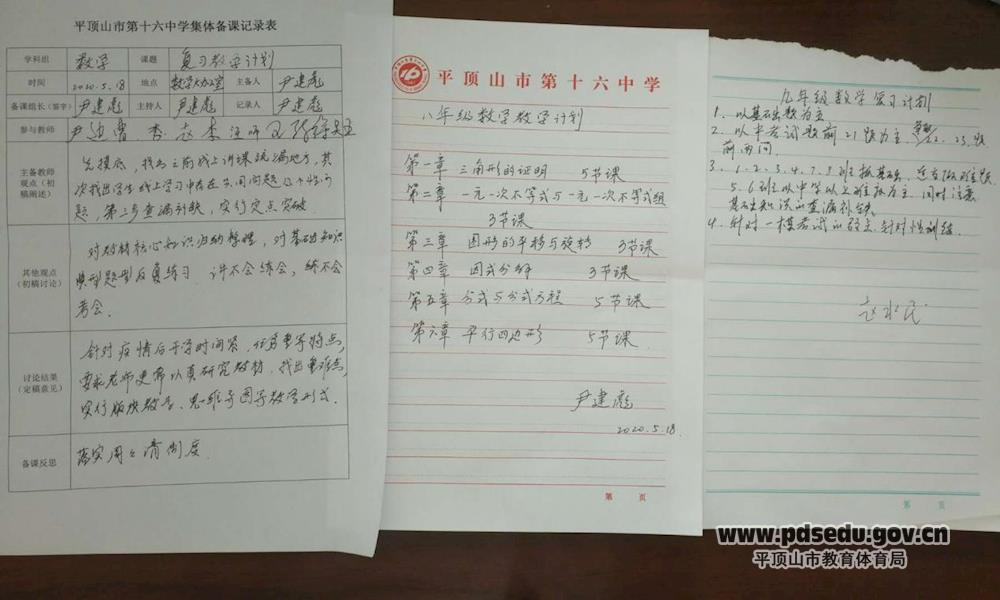 平顶山市第十六中学集体备课记录表
学科组 数学 课题 复习教学计划
时间 2020.5.18 地点 数学大办公室 主备人 尹建彪
备课组长(签字) 尹建彪 主持人 尹建彪 记录人 尹建彪
参与教师
主备教师
观点(初
稿阐述)
先摸底,找出之前线上讲课疏漏地方,其
次找出学生线上学习中存在共同问题及个性问
题,第三步查漏补缺,实行定点突破.
其他观点
(初稿讨论)
对教材核心知识归纳整理,对基础知识
典型题型反复练习 讲不会练会,练不会
考会.
讨论结果
(定稿意见)
针对疫情后开学时间紧,任务重等特点,
要求老师更要认真研究教材,找出重难点,
实行版块教学、思维导图等教学形式.
备课反思 落实周周清制度.
平顶山市第十六中学
八年级数学教学计划
第一章 三角形的证明 5节课
第二章 一元一次不等式与一元一次不等式组
3节课
第三章 图形的平移与旋转 3节课
第四章 因式分解 3节课
第五章 分式与分式方程 5节课
第六章 平行四边形 5节课
尹建彪
2020.5.18.
第 页
九年级数学复习计划
1. 以基础题为主
2. 以中考试题前21题为主 22.23题
前两问.
3. 1.2.3.4.7.8班抓基础,
5.6班主以中等以上难度为主,同时注意
基础知识的查漏补缺.
4. 针对一模考试的弱点,针对性训练.
第 页
www.pdsedu.gov.cn
平顶山市教育体育局